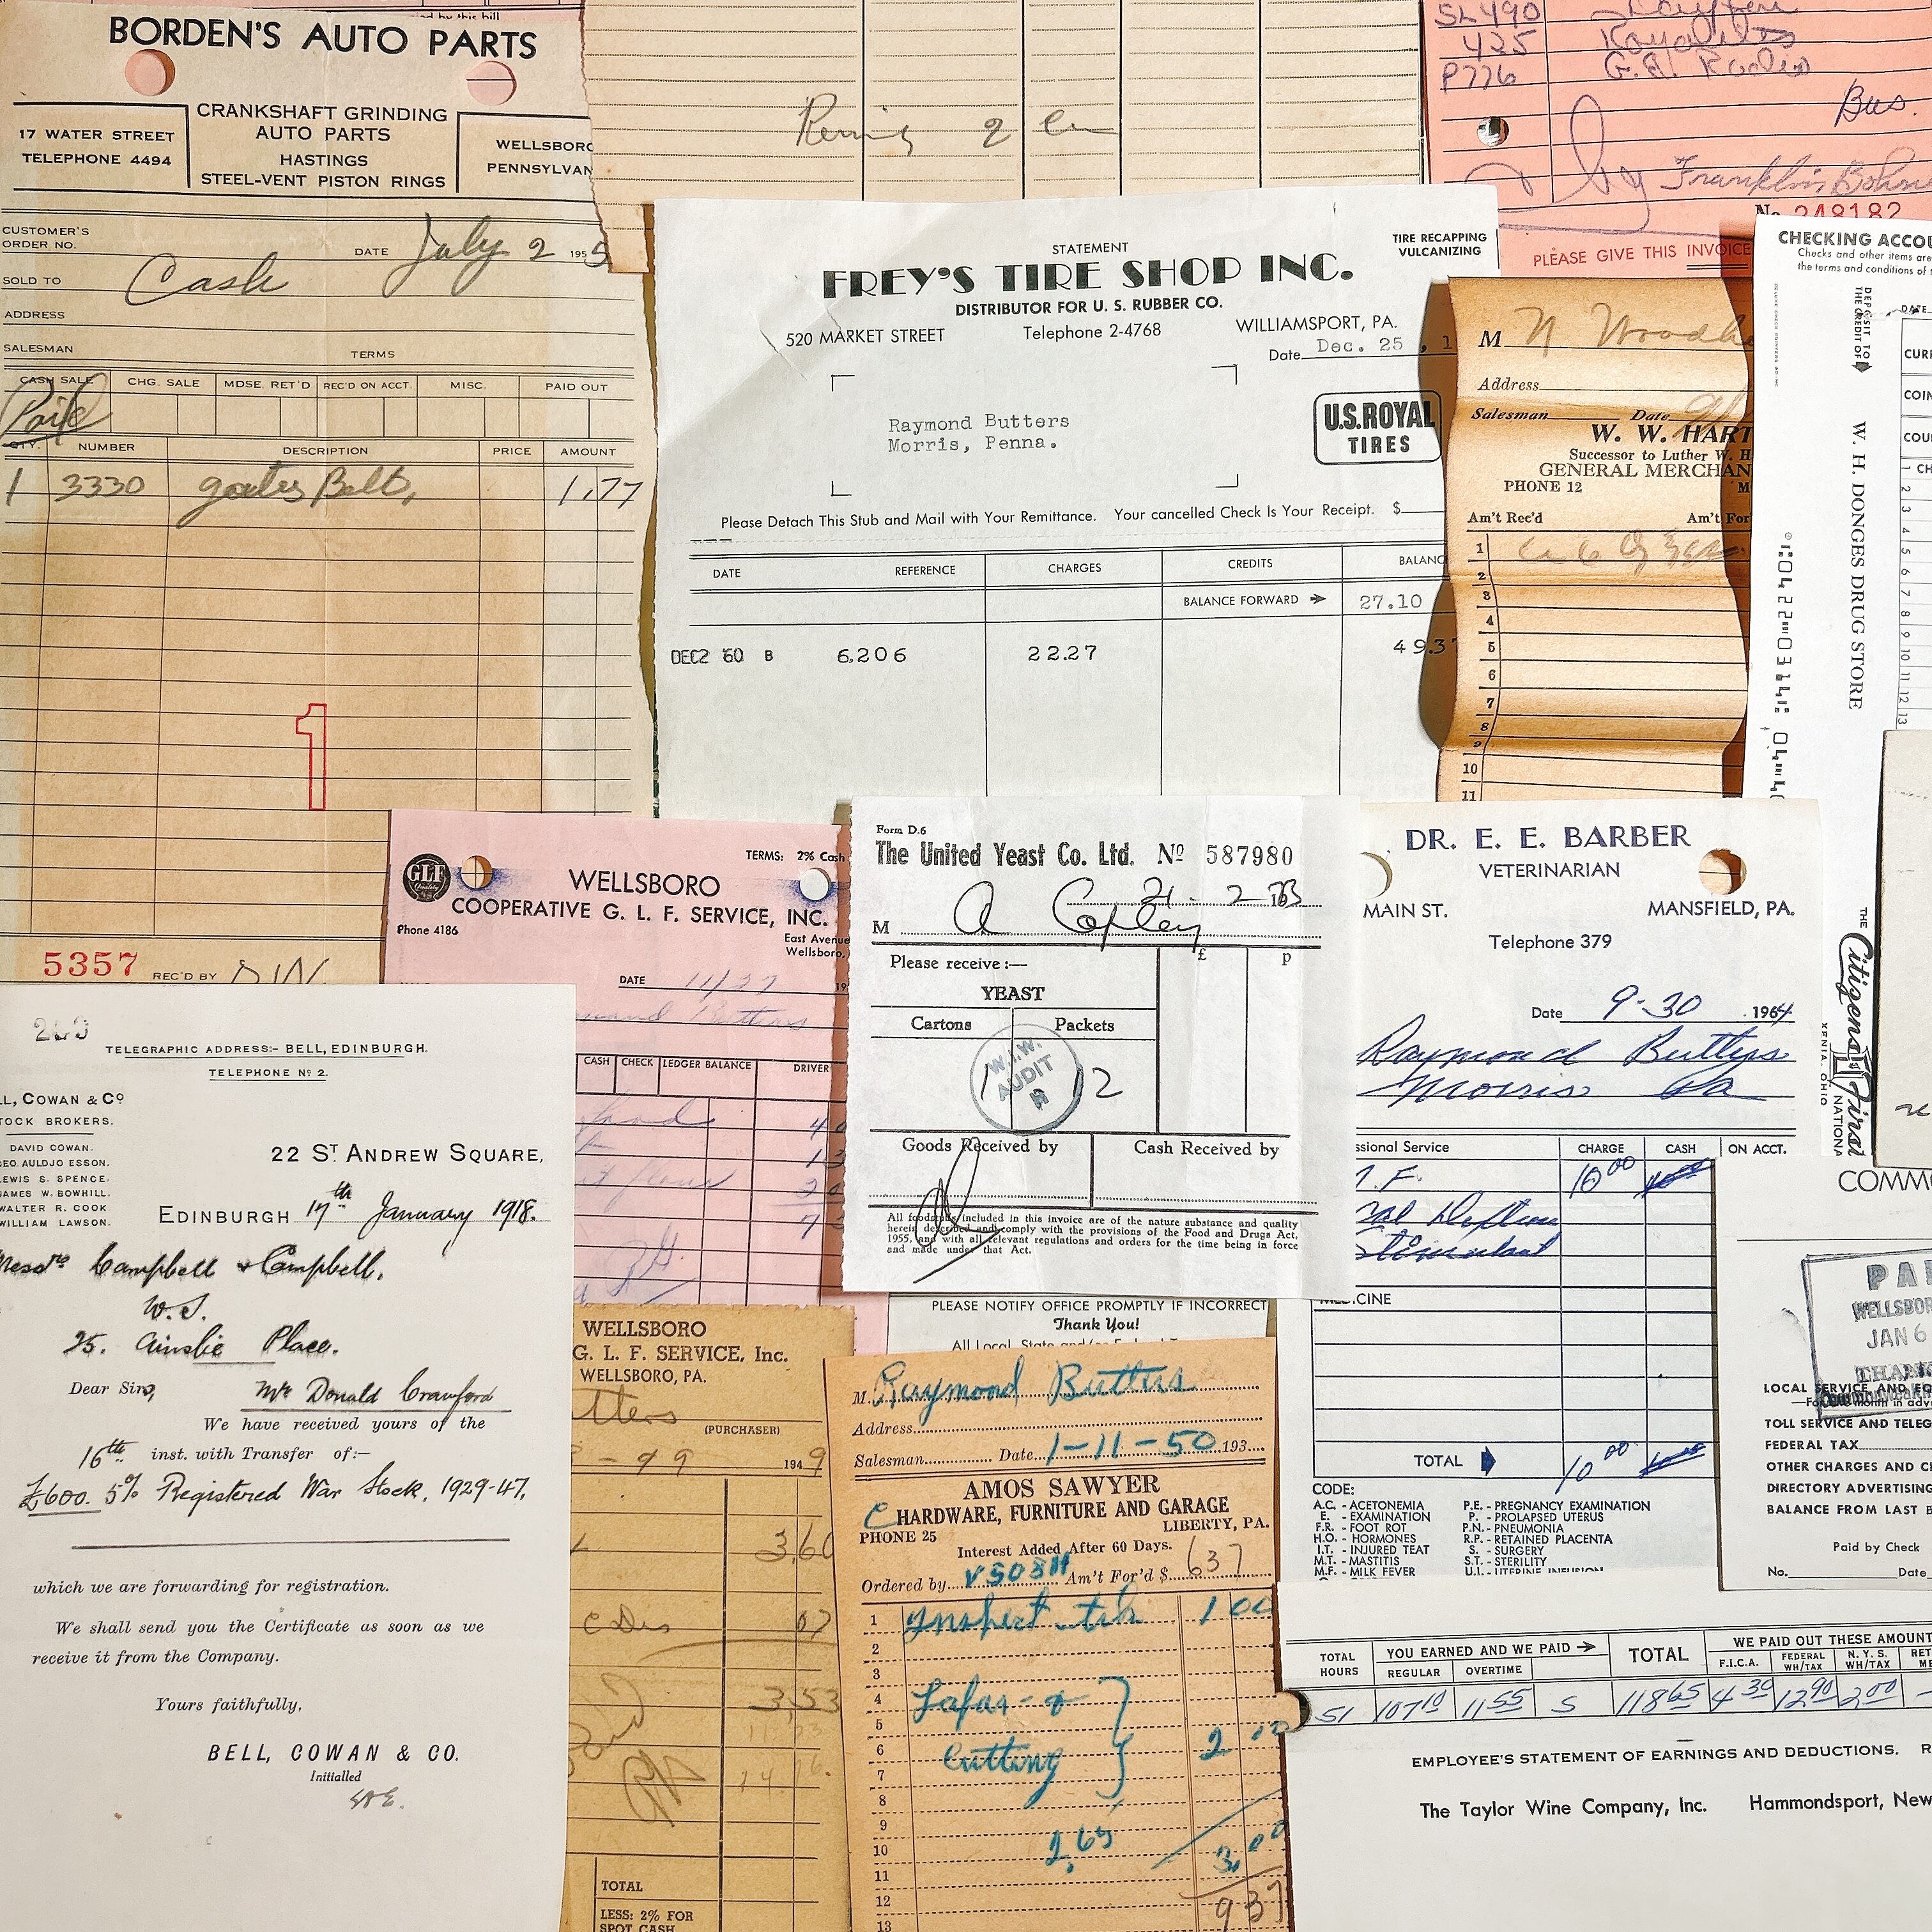 BORDEN'S AUTO PARTS
17 WATER STREET
TELEPHONE 4494
CRANKSHAFT GRINDING
AUTO PARTS
HASTINGS
STEEL-VENT PISTON RINGS
WELLSBORO
PENNSYLVAN
CUSTOMER'S
ORDER NO.
DATE July 2 1955
SOLD TO Cash
ADDRESS
SALESMAN TERMS
CASH SALE CHG. SALE MDSE. RET'D REC'D ON ACCT. MISC. PAID OUT
Paid
QTY. NUMBER DESCRIPTION PRICE AMOUNT
1 3330 gates Belt, 1.77
1
5357 REC'D BY
2 
SL490
425
P776 G.E. Radio
Bus.
by Franklin
No 248182
PLEASE GIVE THIS INVOICE
STATEMENT
FREY'S TIRE SHOP INC.
TIRE RECAPPING
VULCANIZING
DISTRIBUTOR FOR U. S. RUBBER CO.
520 MARKET STREET Telephone 2-4768 WILLIAMSPORT, PA.
Date Dec. 25 , 1
Raymond Butters
Morris, Penna.
U.S. ROYAL
TIRES
Please Detach This Stub and Mail with Your Remittance. Your cancelled Check Is Your Receipt. $
DATE REFERENCE CHARGES CREDITS BALANC
BALANCE FORWARD ➔ 27.10
DEC2 '60 B 6,206 22.27 49.37
M N
Address
Salesman Date
W. W. HART
Successor to Luther W. H
GENERAL MERCHAN
PHONE 12 M
Am't Rec'd Am't For
1
2
3
4
5
6
7
8
9
10
11
CHECKING ACCOU
Checks and other items are
the terms and conditions of
DEPOSIT TO
THE CREDIT OF
W. H. DONGES DRUG STORE
DATE
CURR
COIN
COU
1 CH
2
3
4
5
6
7
8
9
10
11
12
13
THE
Citizens First
NATIONAL
XENIA, OHIO
GLF
Quality
TERMS: 2% Cash
WELLSBORO
COOPERATIVE G. L. F. SERVICE, INC.
Phone 4186
East Avenue
Wellsboro,
DATE 11/27 19
Butters
CASH CHECK LEDGER BALANCE DRIVER
Form D.6
The United Yeast Co. Ltd. No 587980
21. 2 73
M A Copley
£ p
Please receive :—
YEAST
Cartons Packets
W.I.W.
AUDIT
R
1 12
Goods Received by Cash Received by
All foodstuffs included in this invoice are of the nature substance and quality
herein described and comply with the provisions of the Food and Drugs Act,
1955, and with all relevant regulations and orders for the time being in force
and made under that Act.
DR. E. E. BARBER
VETERINARIAN
MAIN ST. MANSFIELD, PA.
Telephone 379
Date 9-30 1964
Raymond Butters
Morris Pa
ssional Service CHARGE CASH ON ACCT.
10 00
MEDICINE
TOTAL 10 00
CODE:
A.C. - ACETONEMIA
E. - EXAMINATION
F.R. - FOOT ROT
H.O. - HORMONES
I.T. - INJURED TEAT
M.T. - MASTITIS
M.F. - MILK FEVER
P.E. - PREGNANCY EXAMINATION
P. - PROLAPSED UTERUS
P.N. - PNEUMONIA
R.P. - RETAINED PLACENTA
S. - SURGERY
S.T. - STERILITY
U.I. - UTERINE INFUSION
COMMO
PAI
WELLSBOR
JAN 6
THAN
LOCAL SERVICE AND EQ
TOLL SERVICE AND TELEG
FEDERAL TAX
OTHER CHARGES AND C
DIRECTORY ADVERTISING
BALANCE FROM LAST B
Paid by Check
No. Date
TELEGRAPHIC ADDRESS:- BELL, EDINBURGH.
TELEPHONE No 2.
LL, COWAN & Co
TOCK BROKERS.
DAVID COWAN.
GEO. AULDJO ESSON.
LEWIS S. SPENCE.
JAMES W. BOWHILL.
WALTER R. COOK
WILLIAM LAWSON.
22 ST ANDREW SQUARE,
EDINBURGH 17th January 1918.
Messrs Campbell & Campbell,
W.S.
25. Ainslie Place.
Dear Sirs,
Mr Donald Crawford
We have received yours of the
16th inst. with Transfer of:—
£600. 5% Registered War Stock, 1929-47,
which we are forwarding for registration.
We shall send you the Certificate as soon as we
receive it from the Company.
Yours faithfully,
BELL, COWAN & CO.
Initialled
WELLSBORO
G. L. F. SERVICE, Inc.
WELLSBORO, PA.
tters
(PURCHASER)
1949
3.60
07
3,53
TOTAL
LESS: 2% FOR
SPOT CASH
PLEASE NOTIFY OFFICE PROMPTLY IF INCORRECT
Thank You!
M. Raymond Butters
Address
Salesman Date 1-11-50 193
AMOS SAWYER
HARDWARE, FURNITURE AND GARAGE
PHONE 25 LIBERTY, PA.
Interest Added After 60 Days.
Ordered by VS03H Am't For'd $ 637
1 Inspect 1 00
2
3
4
5
6 Cutting 2 00
7
8
9
10 2,65 3,00
11
12 937
13
TOTAL HOURS YOU EARNED AND WE PAID ➔ TOTAL WE PAID OUT THESE AMOUNT
REGULAR OVERTIME F.I.C.A. FEDERAL WH/TAX N. Y. S. WH/TAX
51 107 10 11 55 S 118 65 4 30 12 90 2 00
EMPLOYEE'S STATEMENT OF EARNINGS AND DEDUCTIONS. R
The Taylor Wine Company, Inc. Hammondsport, New